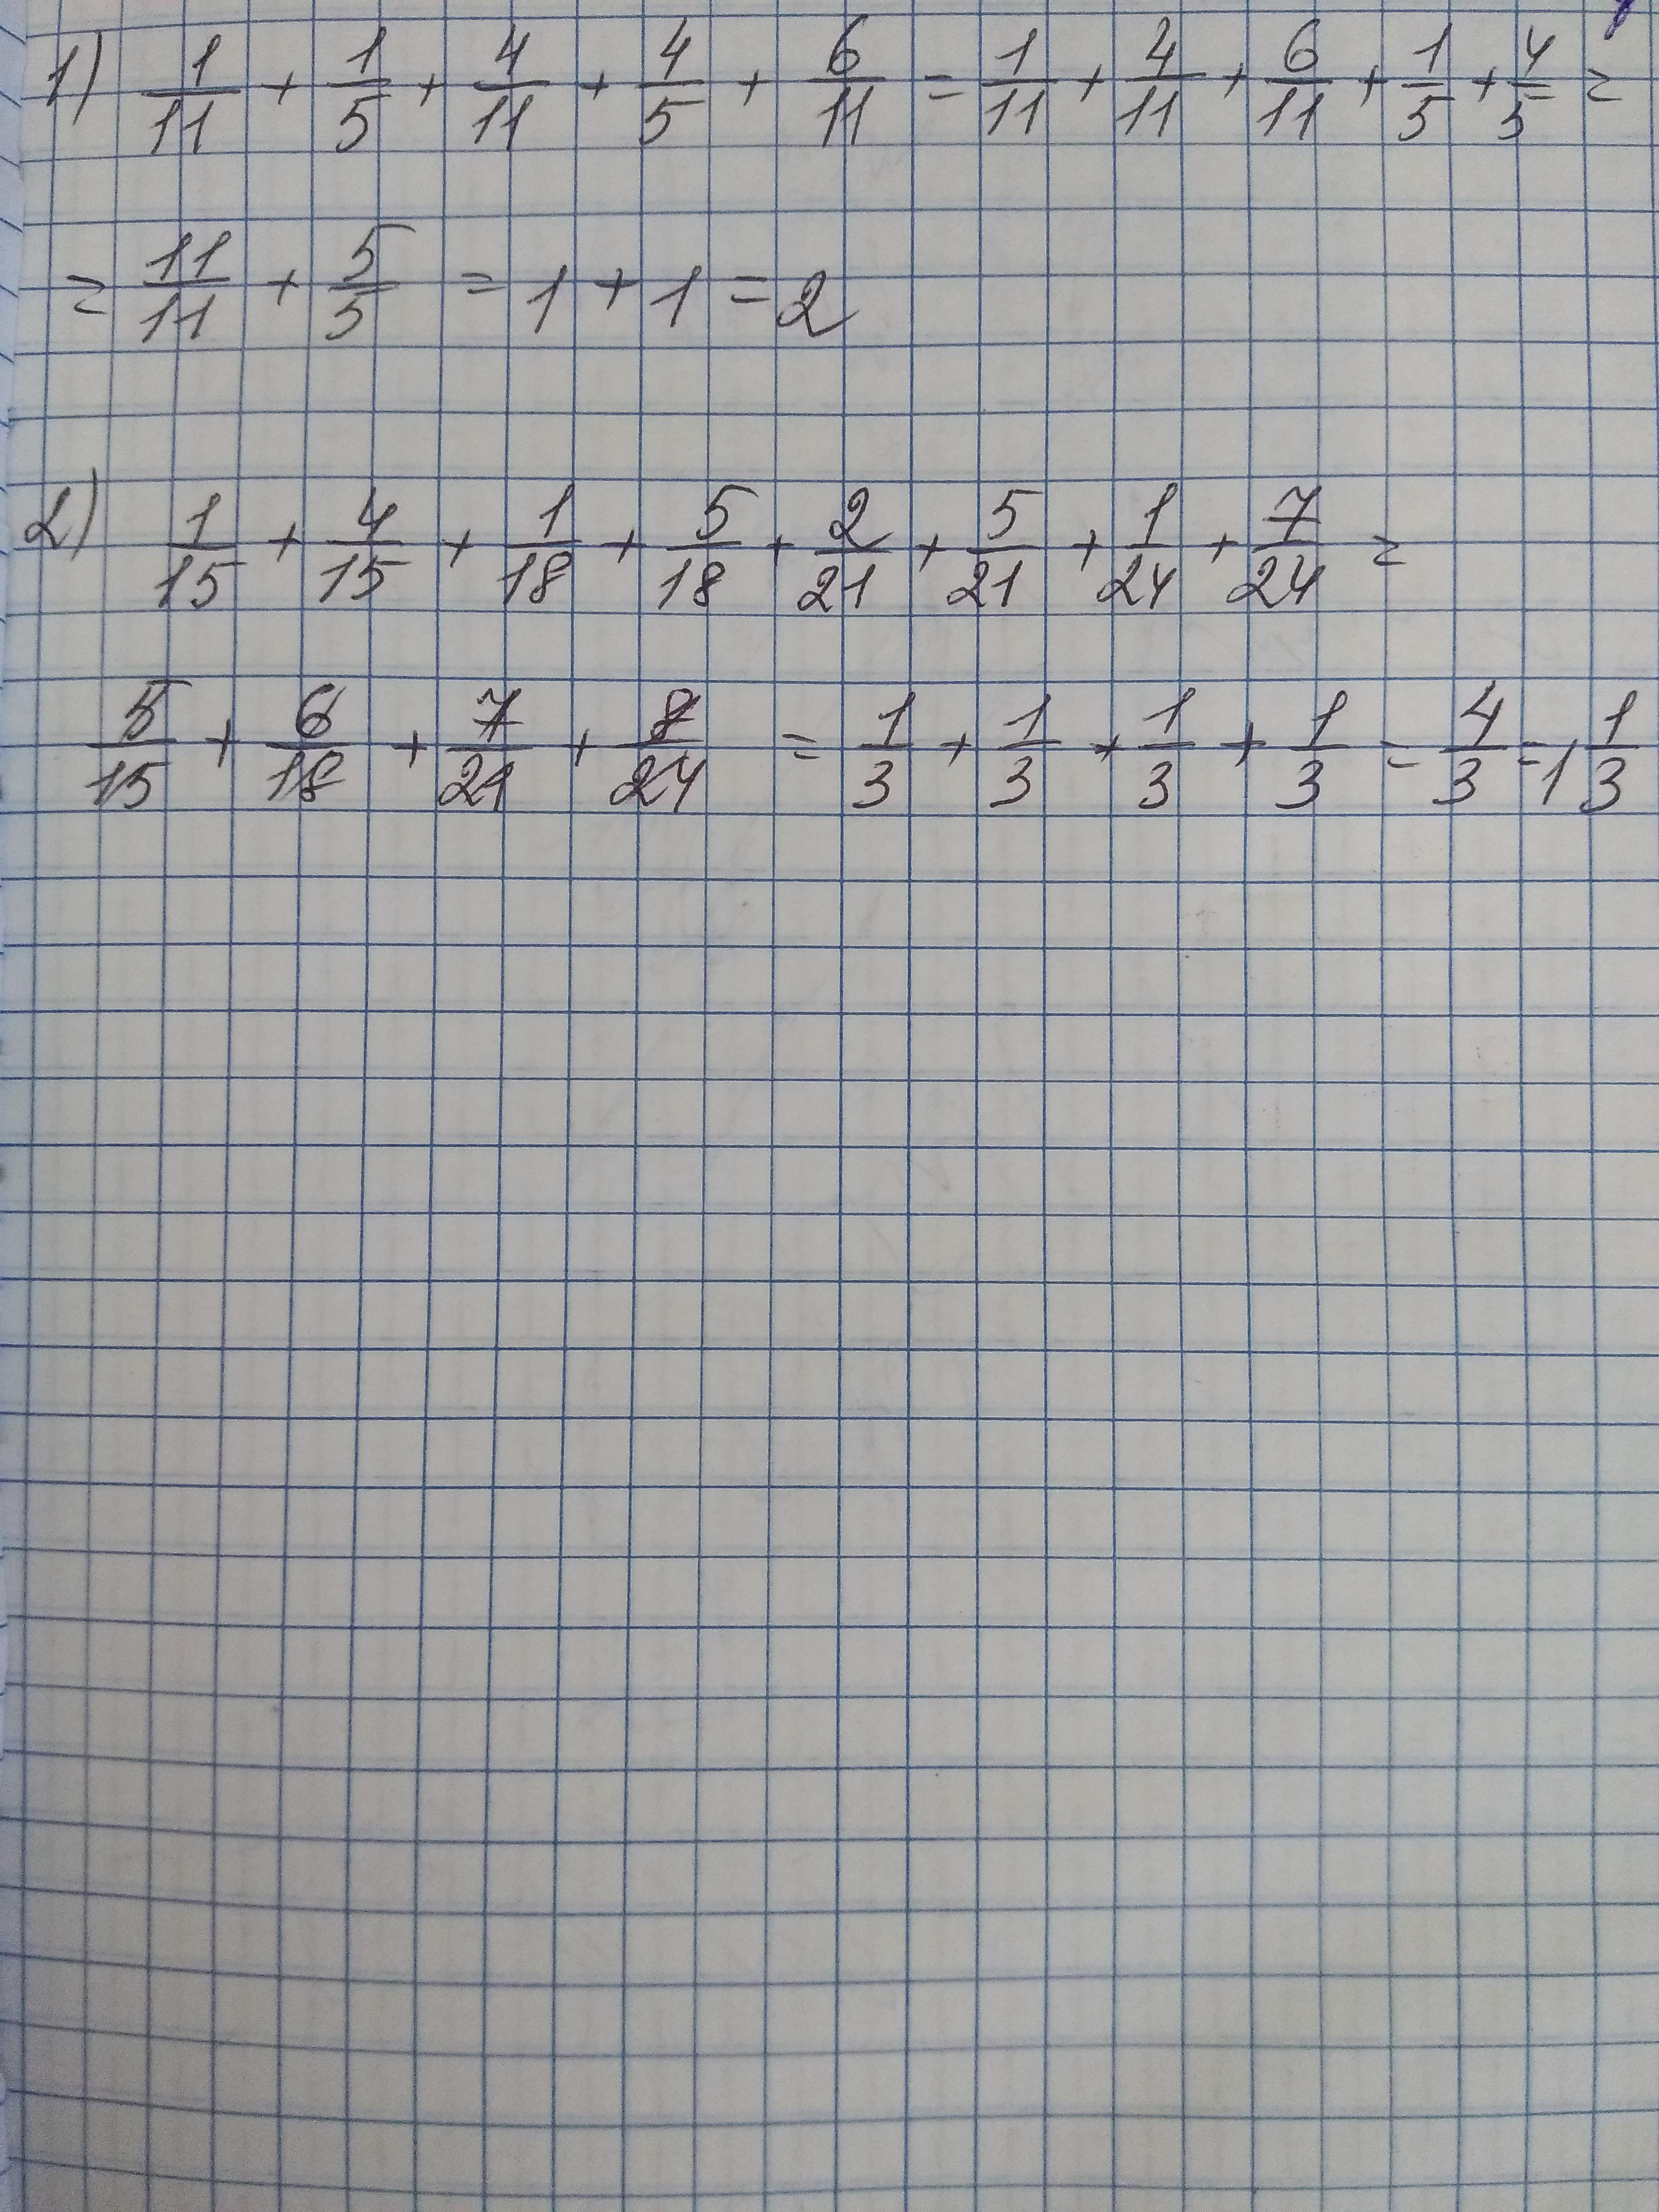 1) 1/11 + 1/5 + 4/11 + 4/5 + 6/11 = 1/11 + 4/11 + 6/11 + 1/5 + 4/5 =
= 11/11 + 5/5 = 1 + 1 = 2
2) 1/15 + 4/15 + 1/18 + 5/18 + 2/21 + 5/21 + 1/24 + 7/24 =
5/15 + 6/18 + 7/21 + 8/24 = 1/3 + 1/3 + 1/3 + 1/3 = 4/3 = 1 1/3